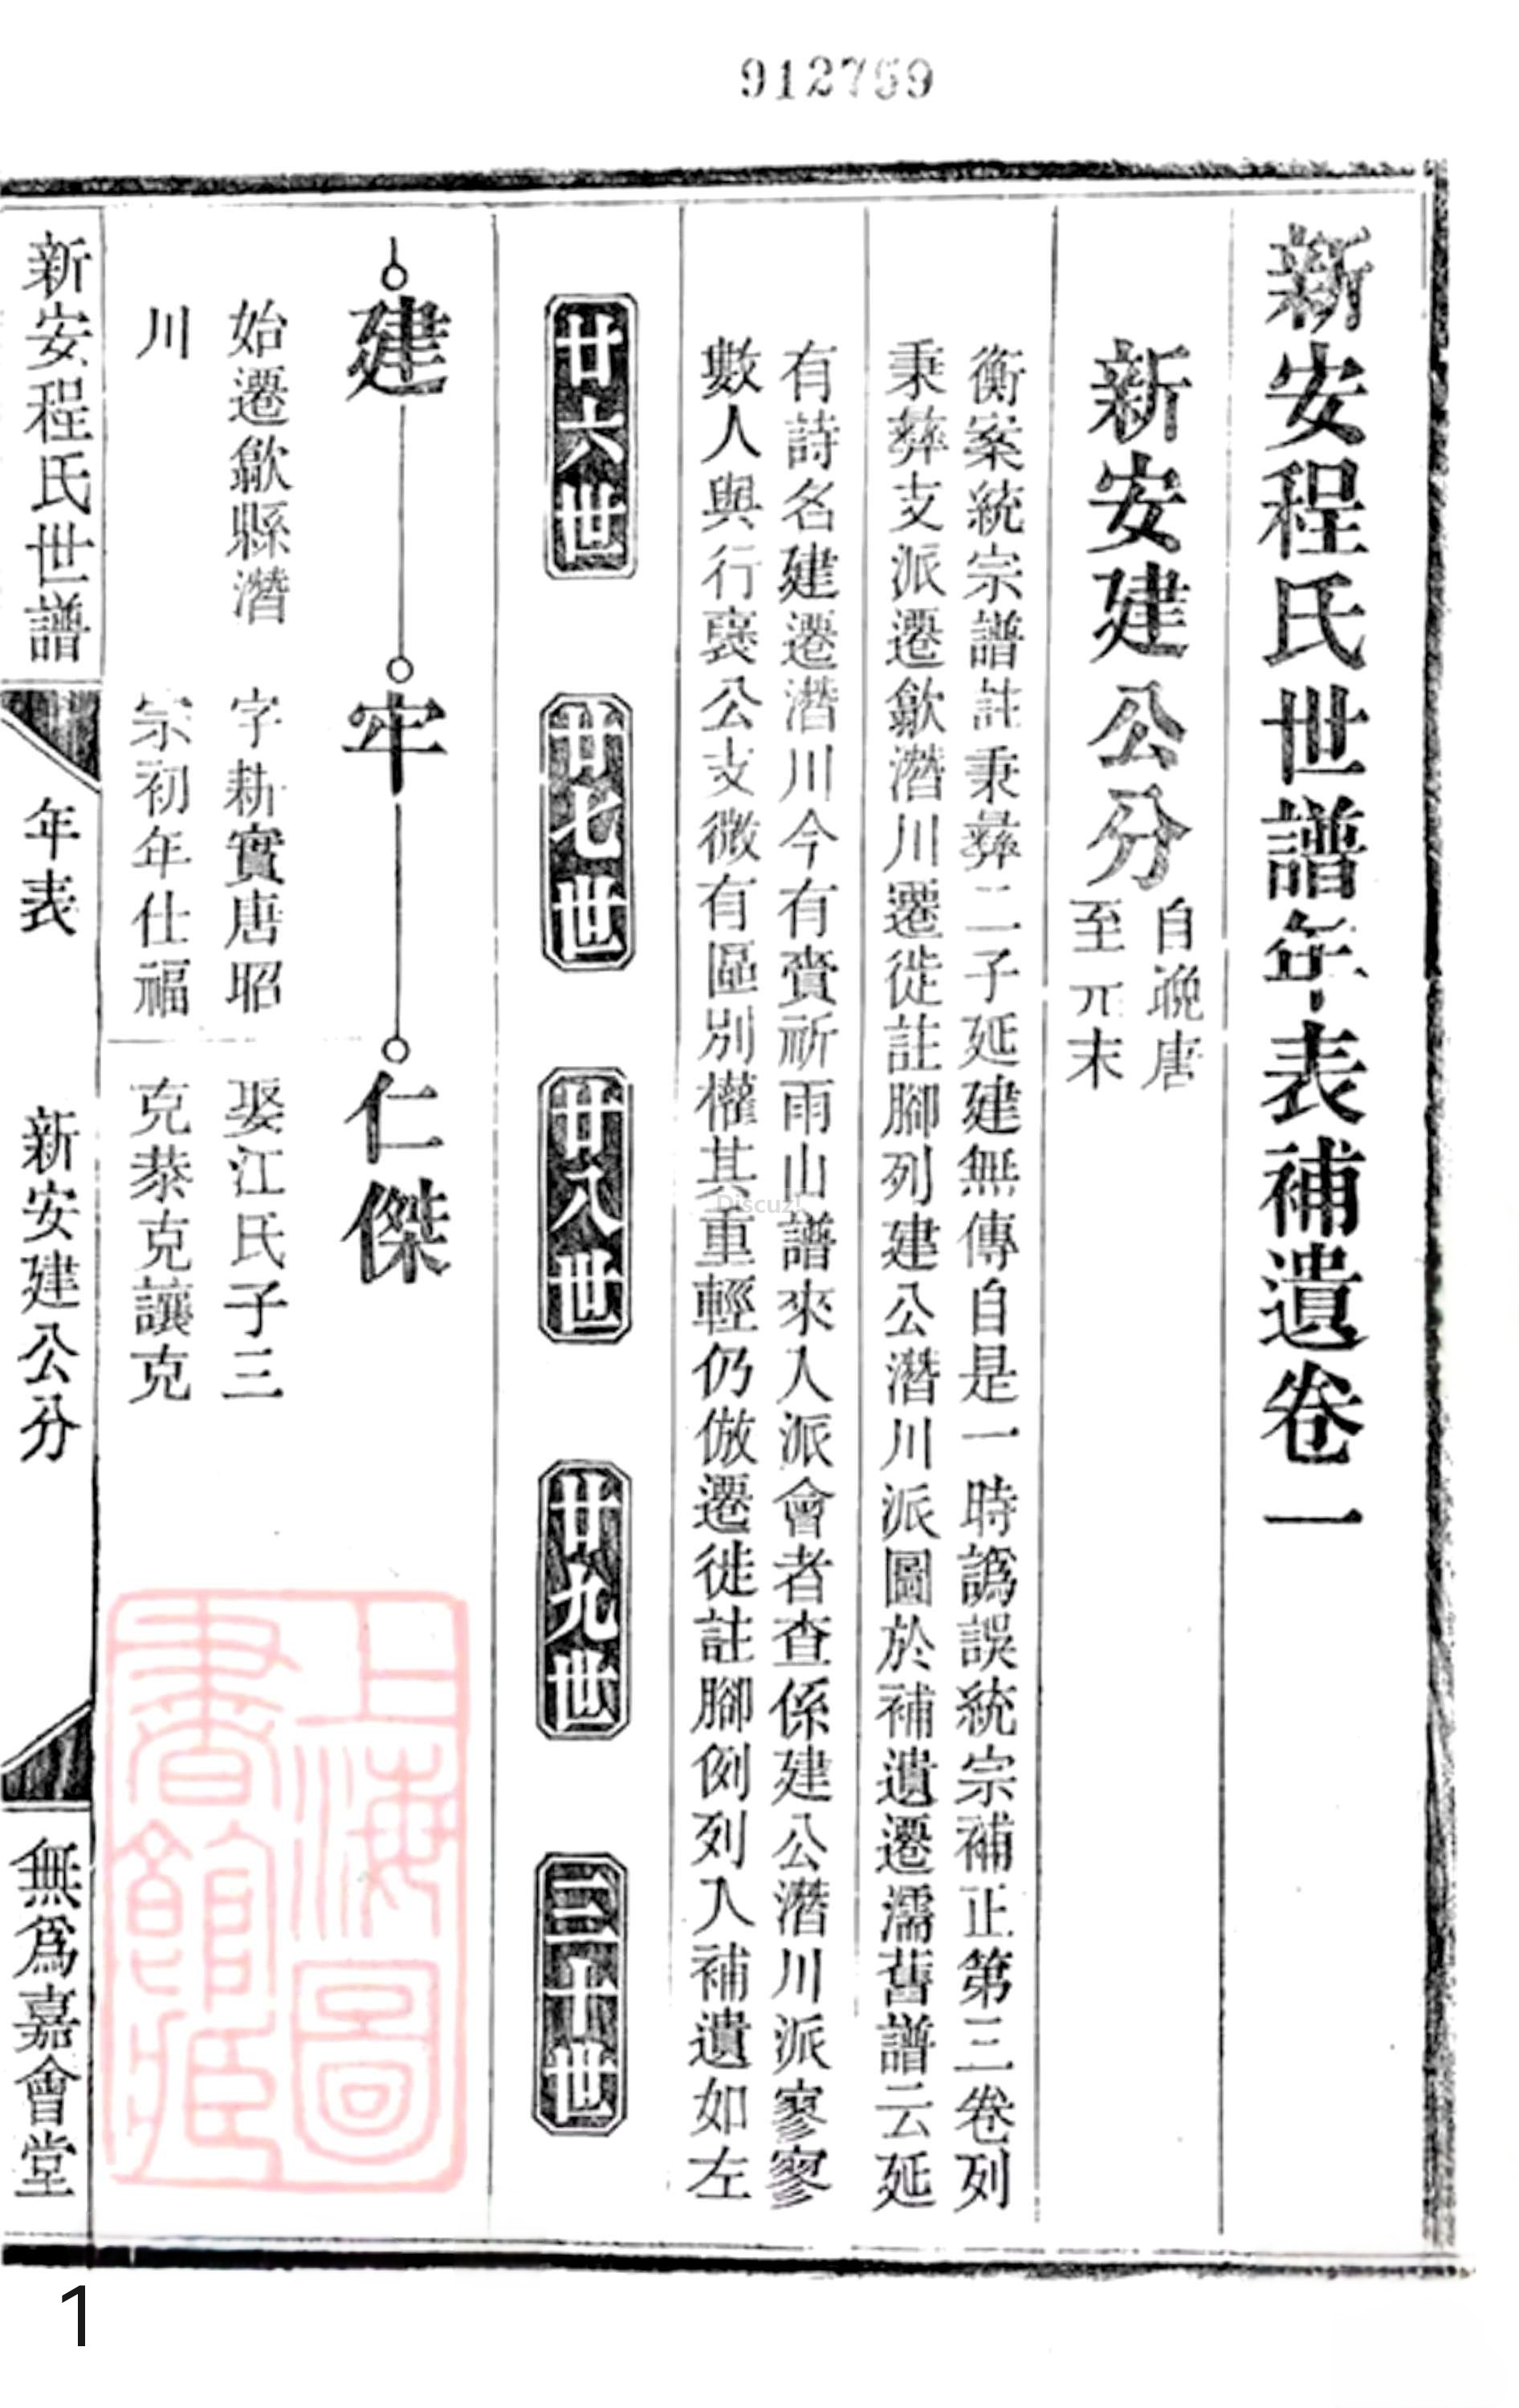 912759
新安程氏世譜年表補遺卷一
新安建公分
自晚唐
至元末
衡案統宗譜註秉彝二子延建無傳自是一時譌誤統宗補正第三卷列
秉彝支派遷歙潛川遷徙註腳列建公潛川派圖於補遺遷濡舊譜云延
有詩名建遷潛川今有賫祈雨山譜來人派會者查係建公潛川派寥寥
數人與行襃公支微有區別權其重輕仍倣遷徙註腳例列入補遺如左
廿六世
廿七世
廿八世
廿九世
三十世
建
牢
仁傑
始遷歙縣潛
川
字耕實唐昭
宗初年仕福
娶江氏子三
克恭克讓克
新安程氏世譜
年表
新安建公分
無爲嘉會堂
上海圖
書館藏
Discuz!
1